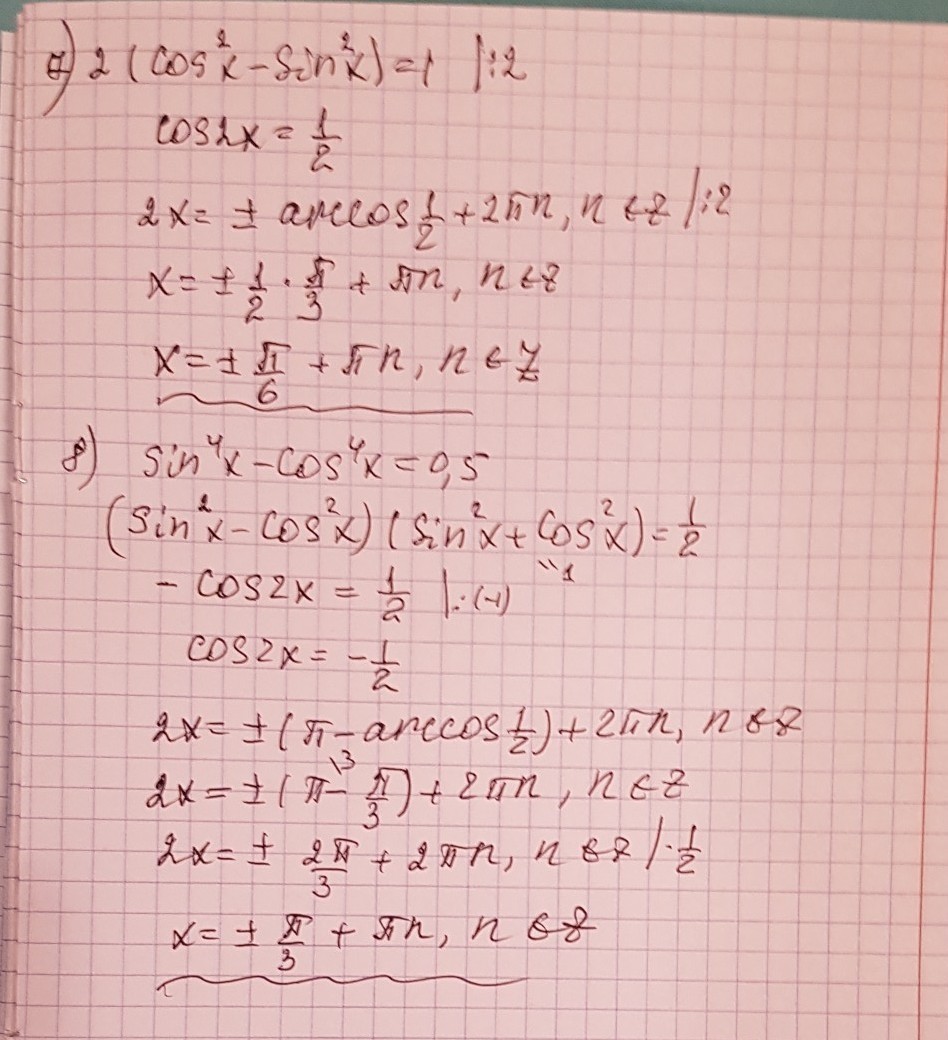 7) 2 (cos²x - sin²x) = 1 |:2
cos2x = 1/2
2x = ± arccos 1/2 + 2πn, n ∈ z |:2
x = ± 1/2 · π/3 + πn, n ∈ z
x = ± π/6 + πn, n ∈ Z
8) sin⁴x - cos⁴x = 0,5
(sin²x - cos²x) (sin²x + cos²x) = 1/2
"1
- cos2x = 1/2 |:(-1)
cos2x = - 1/2
2x = ± (π - arccos 1/2) + 2πn, n ∈ z
2x = ± (π\3 - π/3) + 2πn, n ∈ z
2x = ± 2π/3 + 2πn, n ∈ z |· 1/2
x = ± π/3 + πn, n ∈ z